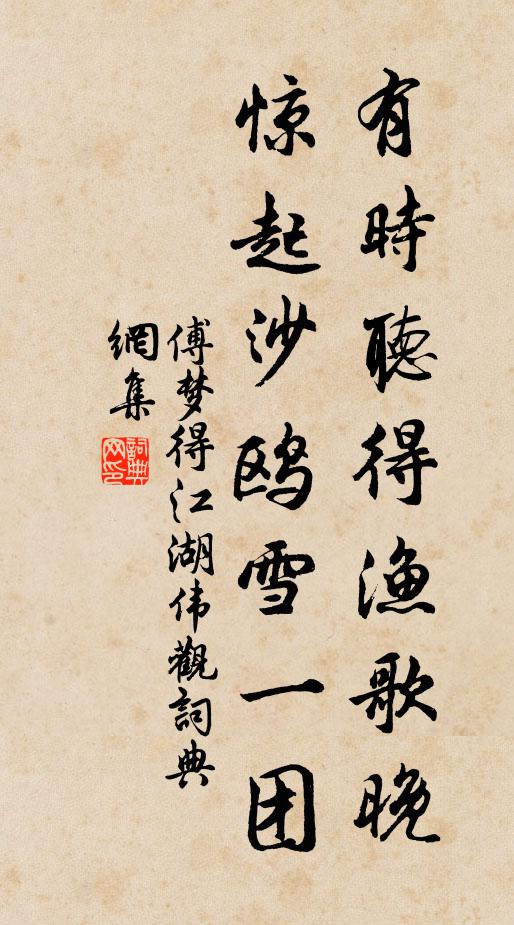 有時聽得漁歌晚
惊起沙鸥雪一团
傅梦得江湖伟觀詞典
網集
詞典网印